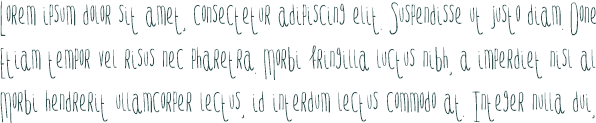 Lorem ipsum dolor sit amet, consectetur adipiscing elit. Suspendisse ut justo diam. Done
Etiam tempor vel risus nec pharetra. Morbi fringilla luctus nibh, a imperdiet nisl al
Morbi hendrerit ullamcorper lectus, id interdum lectus commodo at. Integer nulla dui,